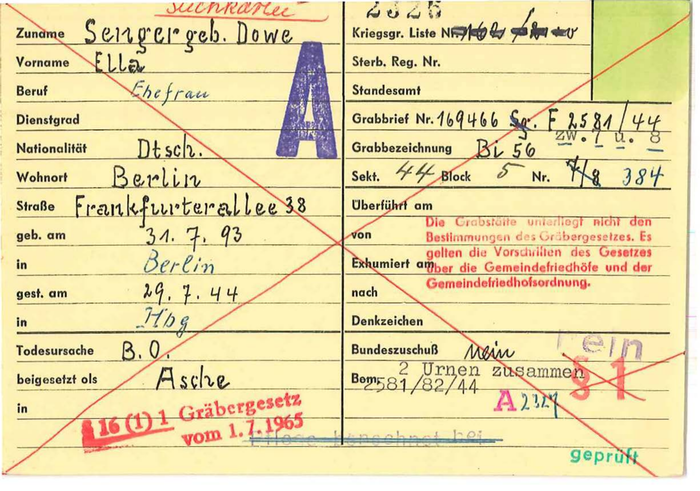 Suchkartei
2326
Zuname Senger geb. Dowe
Kriegsgr. Liste Nr.
Vorname Ella
Sterb. Reg. Nr.
Beruf Ehefrau
A
Standesamt
Dienstgrad
Grabbrief Nr. 169466 Sg. F 2581/44
zw. 7 u. 8
Nationalität Dtsch.
Grabbezeichnung Bi 56
Wohnort Berlin
Sekt. 44 Block 5 Nr. 7/8 384
Straße Frankfurterallee 38
Überführt am
geb. am 31. 7. 93
von
in Berlin
Exhumiert am
Die Grabstätte unterliegt nicht den
Bestimmungen des Gräbergesetzes. Es
gelten die Vorschriften des Gesetzes
über die Gemeindefriedhöfe und der
Gemeindefriedhofsordnung.
gest. am 29. 7. 44
nach
in Hbg
Denkzeichen
Todesursache B. O.
Bundeszuschuß nein
nein
beigesetzt als Asche
Bem. 2 Urnen zusammen
2581/82/44
§ 1
in
A 2327
§ 16 (1) 1 Gräbergesetz
vom 1.7.1965
geprüft